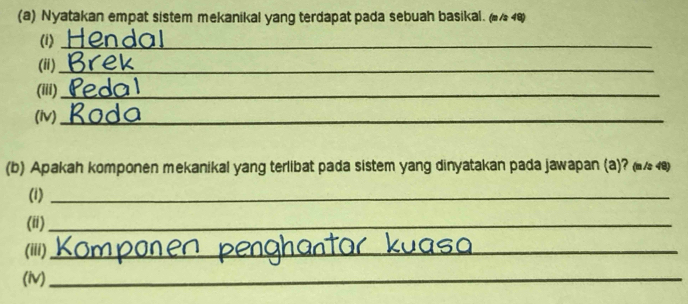 (a) Nyatakan empat sistem mekanikal yang terdapat pada sebuah basikal.
(i) Hendal
(ii) Brek
(iii) Pedal
(iv) Roda
(b) Apakah komponen mekanikal yang terlibat pada sistem yang dinyatakan pada jawapan (a)?
(i)
(ii)
(iii) Komponen penghantar kuasa
(iv)